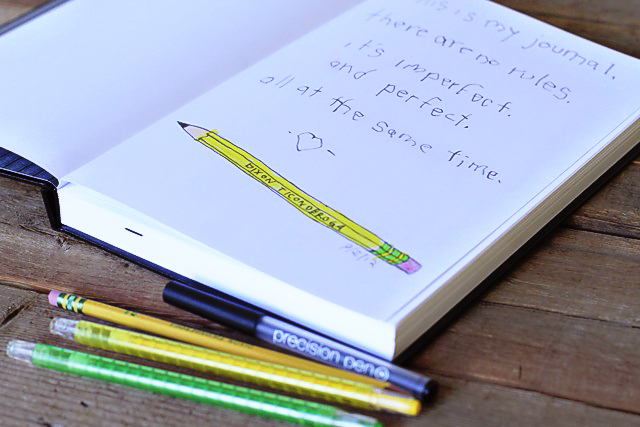 This is my journal.
there are no rules.
it's imperfect.
and perfect.
all at the same time.
DIXON TICONDEROGA
precision pen